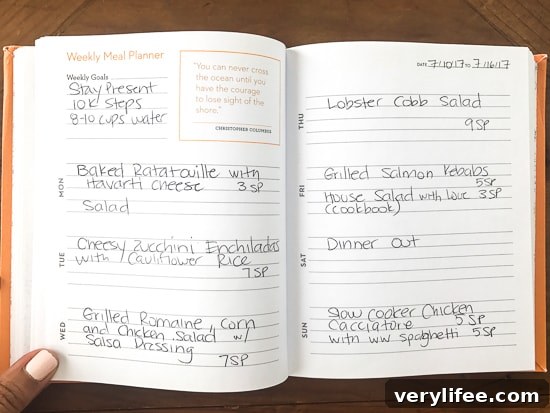 Weekly Meal Planner
Weekly Goals
Stay Present
10K Steps
8-10 cups water
"You can never cross
the ocean until you
have the courage
to lose sight of the
shore."
CHRISTOPHER COLUMBUS
MON
Baked Ratatouille with
Havarti Cheese 3 SP
Salad
TUE
Cheesy Zucchini Enchiladas
with Cauliflower Rice
7 SP
WED
Grilled Romaine, Corn
and Chicken Salad w/
Salsa Dressing
7 SP
DATE 7/10/17 TO 7/16/17
THU
Lobster Cobb Salad
9 SP
FRI
Grilled Salmon Kebabs
5 SP
House Salad with Love 3 SP
(cookbook)
SAT
Dinner Out
SUN
Slow Cooker Chicken
Cacciatore 5 SP
with ww spaghetti 5 SP
verylifee.com